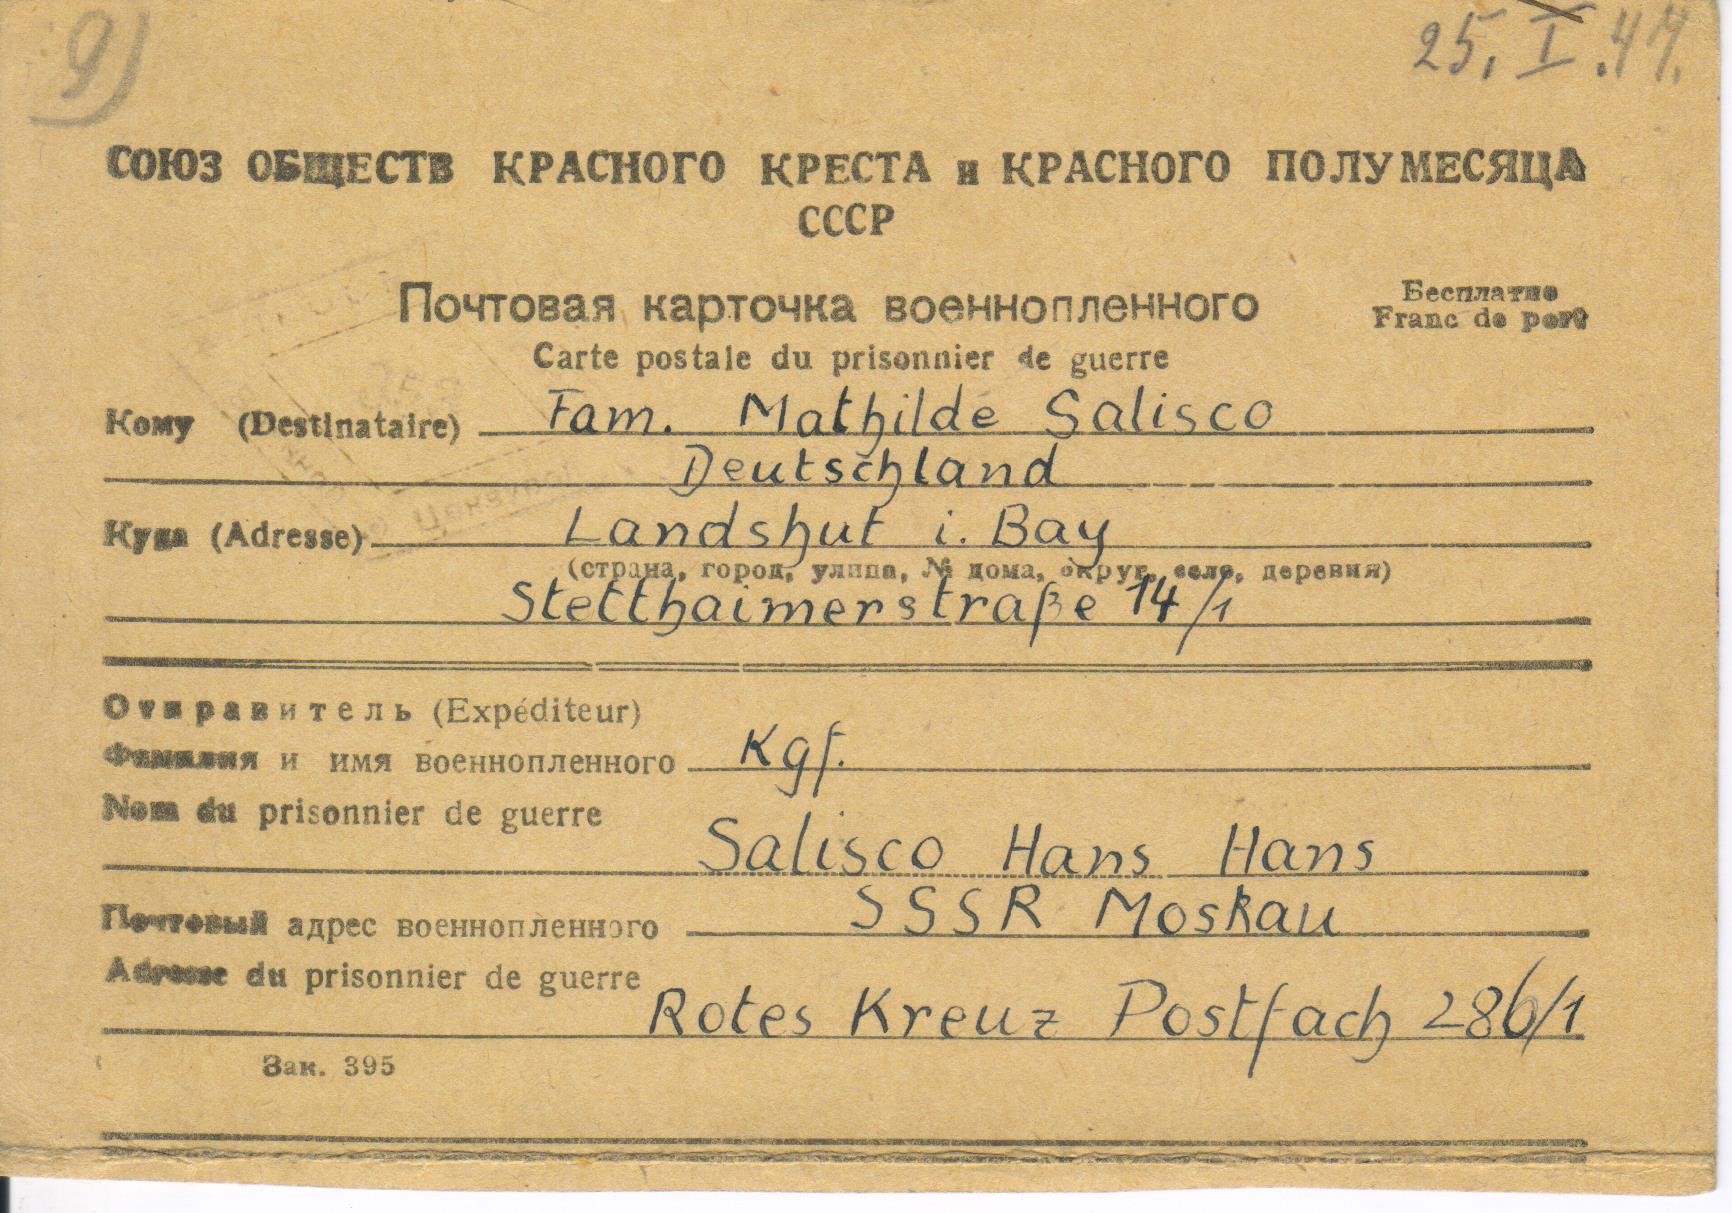 9)
25. I. 47.
СОЮЗ ОБЩЕСТВ КРАСНОГО КРЕСТА и КРАСНОГО ПОЛУМЕСЯЦА
СССР
Почтовая карточка военнопленного
Бесплатно
Franc de port
Carte postale du prisonnier de guerre
Кому (Destinataire) Fam. Mathilde Salisco
Deutschland
Куда (Adresse) Landshut i. Bay
(страна, город, улица, № дома, округ, село, деревня)
Stetthaimerstraße 14/1
Отправитель (Expéditeur)
Фамилия и имя военнопленного Kgf.
Nom du prisonnier de guerre
Salisco Hans Hans
Почтовый адрес военнопленного SSSR Moskau
Adresse du prisonnier de guerre
Rotes Kreuz Postfach 286/1
Зак. 395